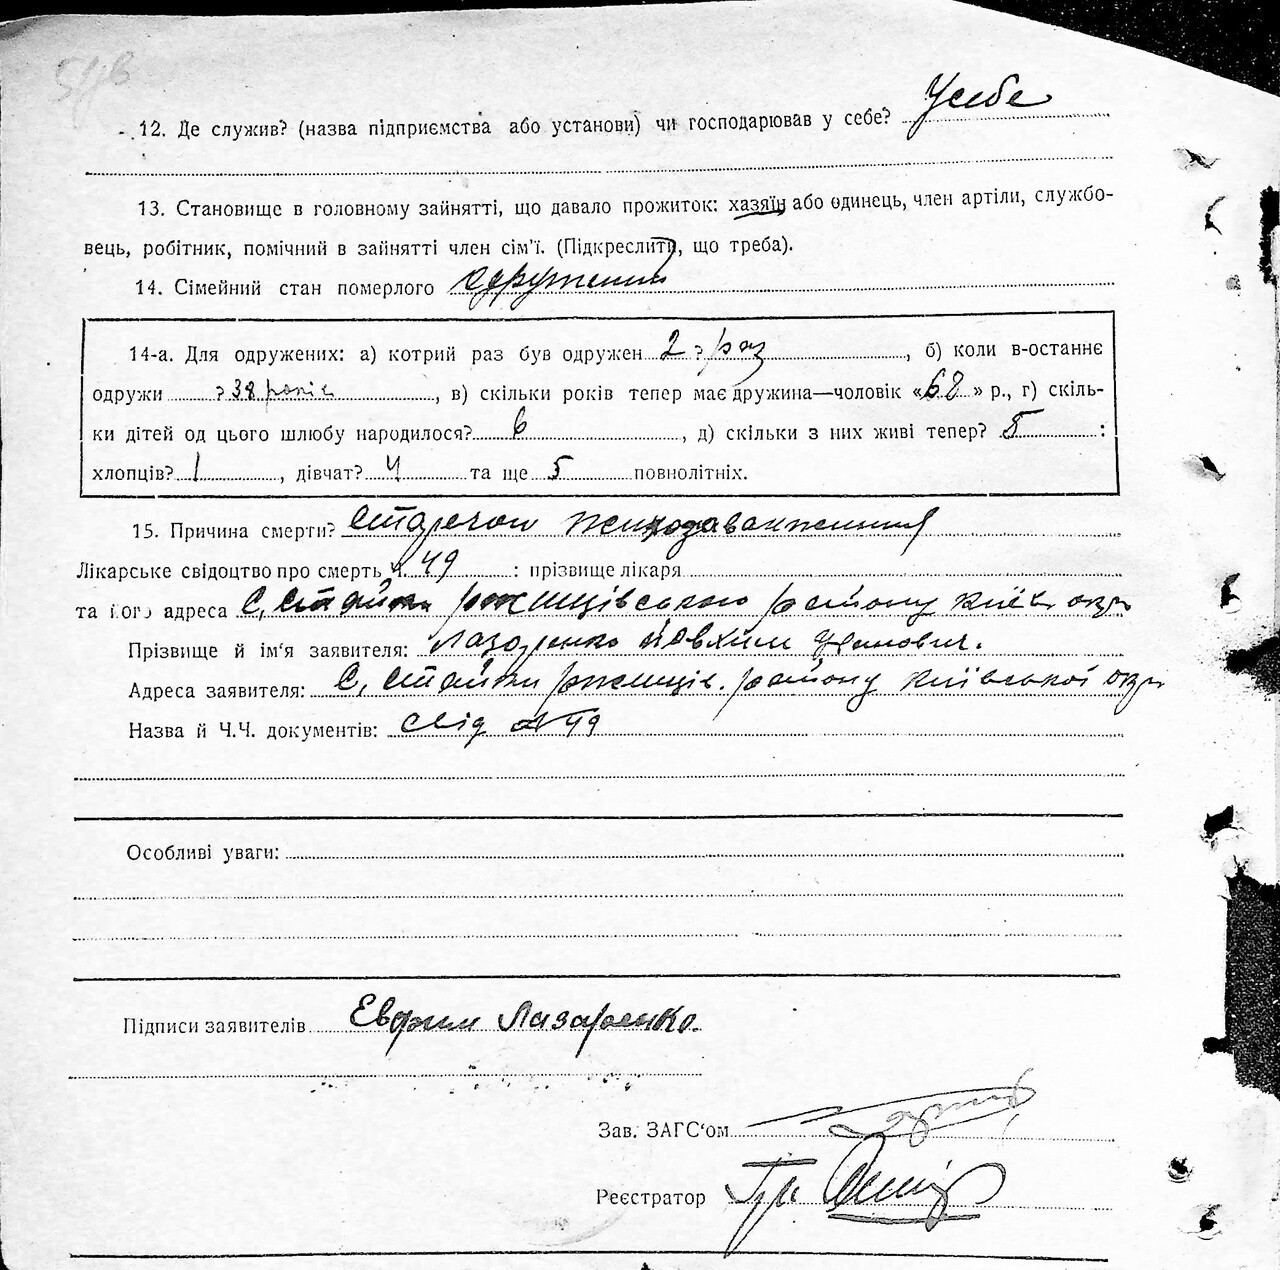 12. Де служив? (назва підприємства або установи) чи господарював у себе? У себе
13. Становище в головному зайнятті, що давало прожиток: хазяїн або одинець, член артіли, службо-
вець, робітник, помічний в зайнятті член сім'ї. (Підкреслити, що треба).
14. Сімейний стан померлого одружений
14-а. Для одружених: а) котрий раз був одружен 2 ? раз, б) коли в-останнє
одружи ? 38 років, в) скільки років тепер має дружина—чоловік «68» р., г) скіль-
ки дітей од цього шлюбу народилося? 6, д) скільки з них живі тепер? 5 :
хлопців? 1, дівчат? 4 та ще 5 повнолітніх.
15. Причина смерти?
Лікарське свідоцтво про смерть Ч. 49 : прізвище лікаря
та його адреса С. Стайки Ржищівського району Київ окр
Прізвище й ім'я заявителя: Лазаренко Йовхим Іванович.
Адреса заявителя: С. Стайки Ржищів. району Київської окр
Назва й Ч.Ч. документів: Свід № 49
Особливі уваги:
Підписи заявителів Евфим Лазаренко.
Зав. ЗАГС'ом
Реєстратор